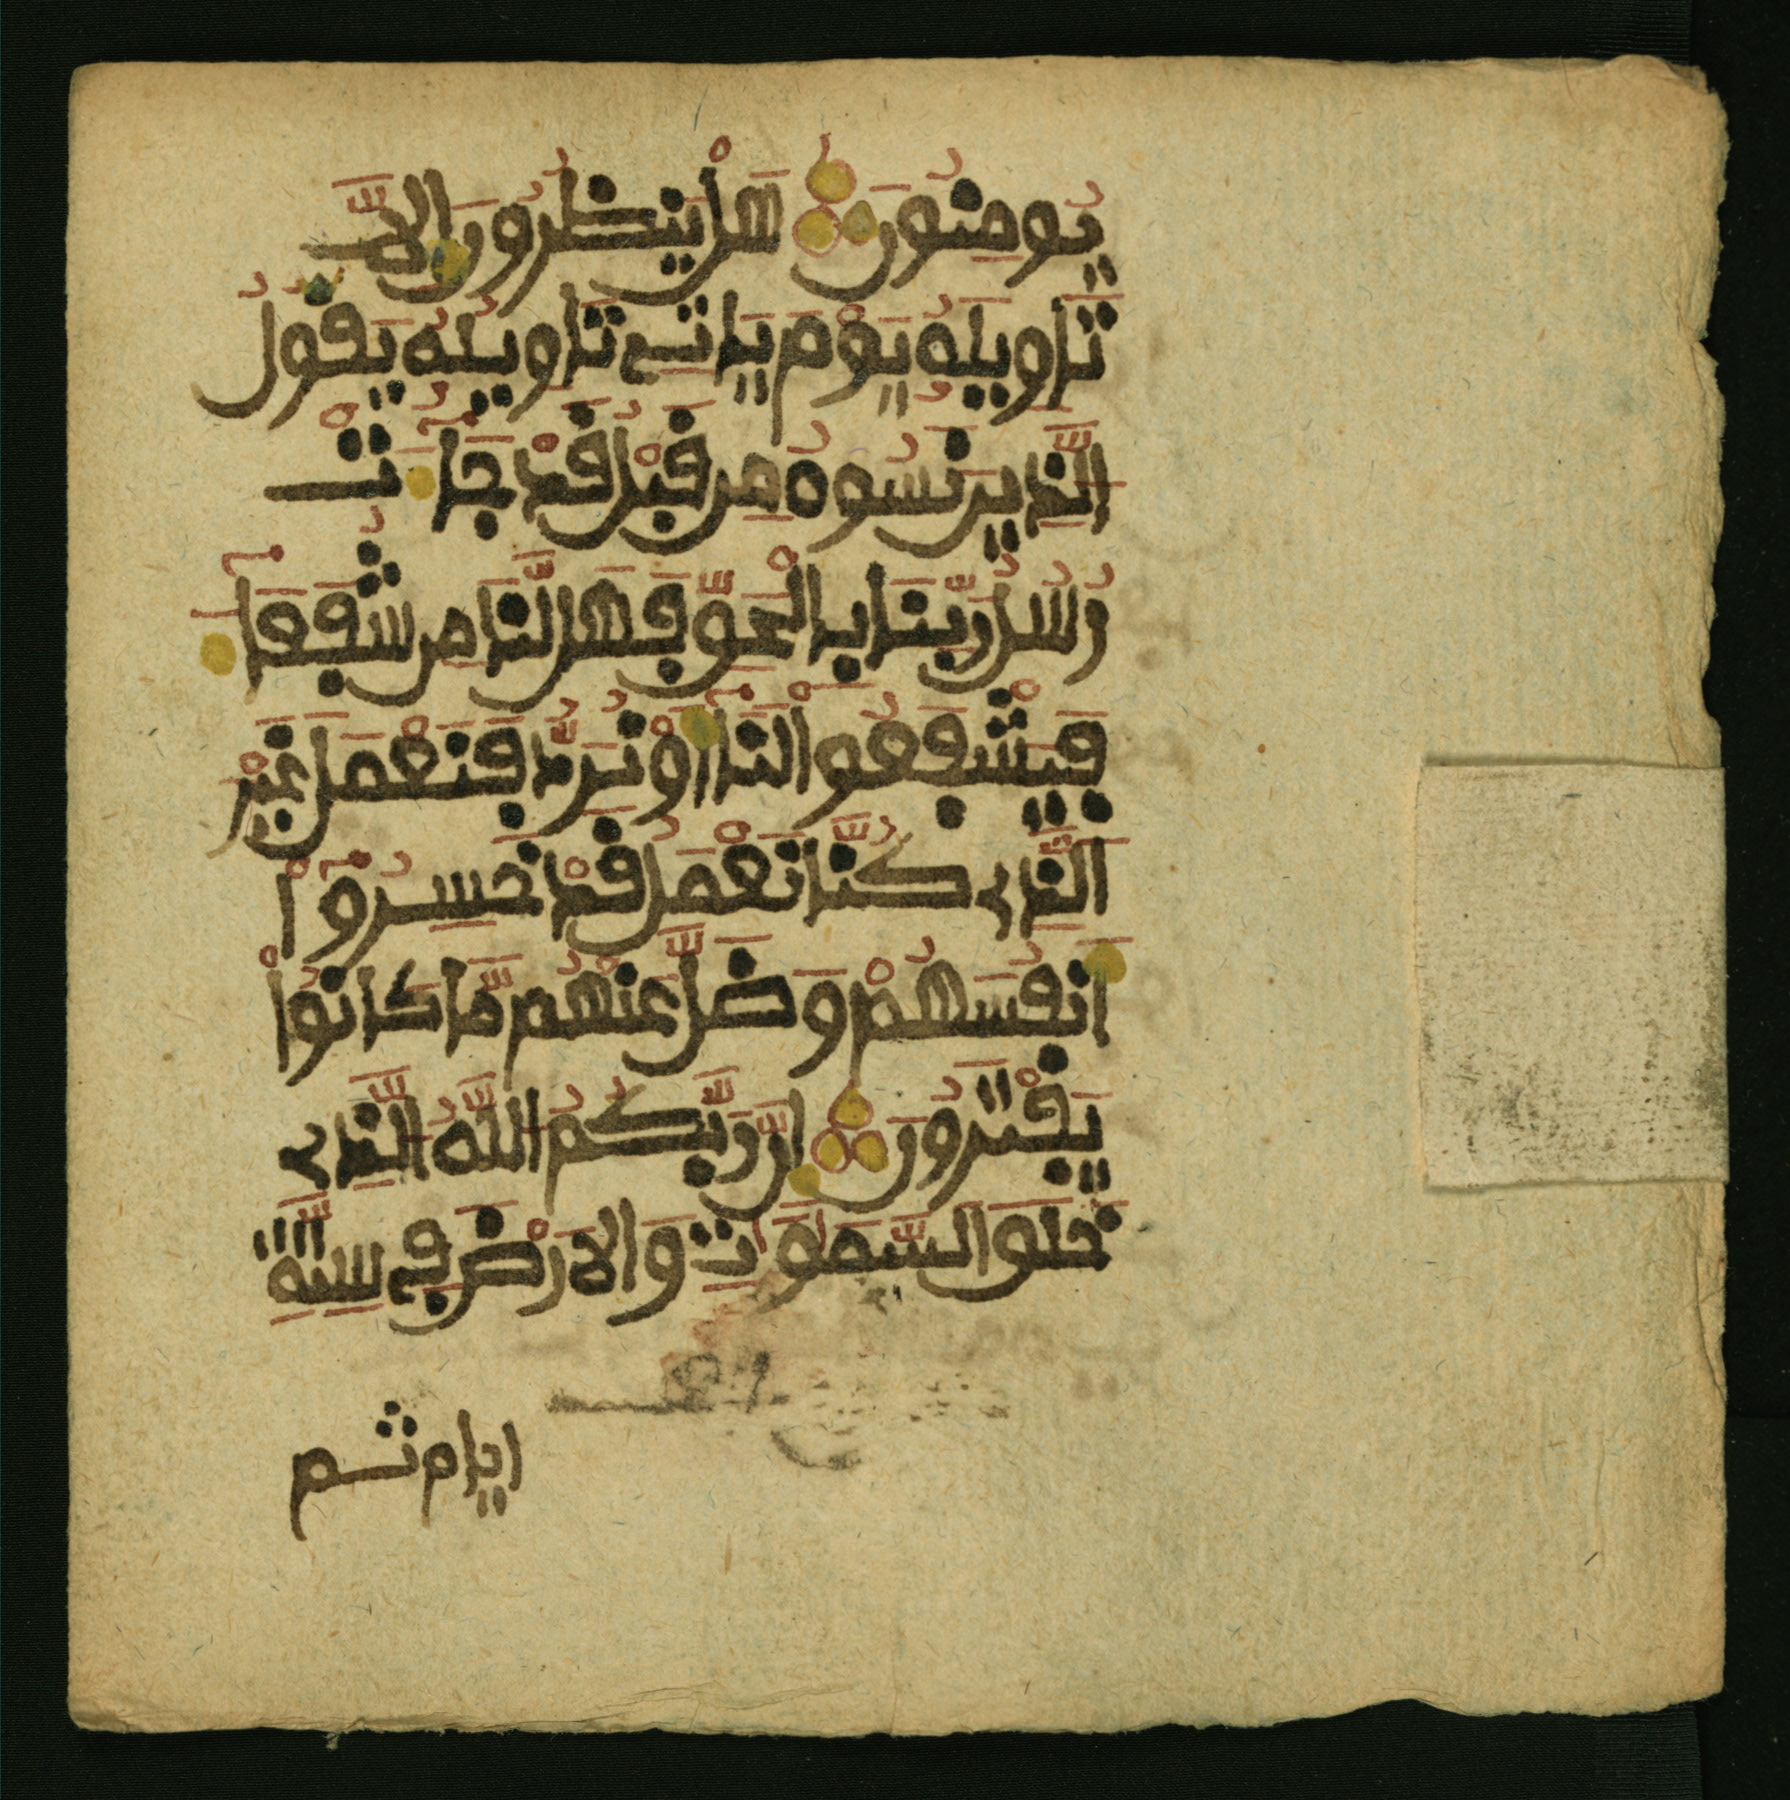 يُومِنُونَ هَلْ يَنظُرُونَ إِلَّا
تَاوِيلَهُ يَوْمَ يَاتِے تَاوِيلُهُ يَقُولُ
الَّذِينَ نَسُوهُ مِن قَبْلُ قَدْ جَآءَتْ
رُسُلُ رَبِّنَا بِالْحَقِّ فَهَل لَّنَا مِن شُفَعَآءَ
فَيَشْفَعُواْ لَنَآ أَوْ نُرَدُّ فَنَعْمَلَ غَيْرَ
الَّذِے كُنَّا نَعْمَلُ قَدْ خَسِرُوٓاْ
أَنفُسَهُمْ وَضَلَّ عَنْهُم مَّا كَانُواْ
يَفْتَرُونَ إِنَّ رَبَّكُمُ اللَّهُ الَّذِے
خَلَقَ السَّمَٰوَٰتِ وَالَارْضَ فِے سِتَّةِ
ايام ثم